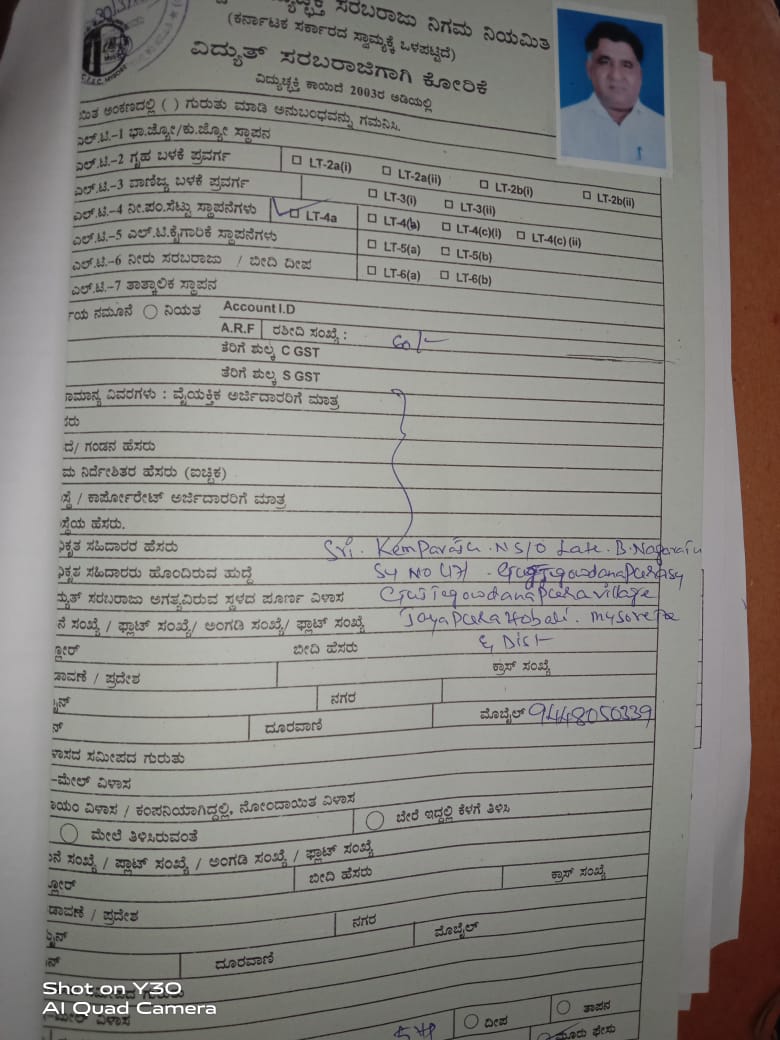 ಸರಬರಾಜು ನಿಗಮ ನಿಯಮಿತ
(ಕರ್ನಾಟಕ ಸರ್ಕಾರದ ಸ್ವಾಮ್ಯಕ್ಕೆ ಒಳಪಟ್ಟಿದೆ)
ವಿದ್ಯುತ್ ಸರಬರಾಜಿಗಾಗಿ ಕೋರಿಕೆ
ವಿದ್ಯುಚ್ಛಕ್ತಿ ಕಾಯಿದೆ 2003ರ ಅಡಿಯಲ್ಲಿ
ಅಂಕಣದಲ್ಲಿ ( ) ಗುರುತು ಮಾಡಿ ಅನುಬಂಧವನ್ನು ಗಮನಿಸಿ.
ಎಲ್.ಟಿ.-1 ಭಾ.ಜ್ಯೋ/ಕು.ಜ್ಯೋ ಸ್ಥಾಪನ
ಎಲ್.ಟಿ.-2 ಗೃಹ ಬಳಕೆ ಪ್ರವರ್ಗ LT-2a(i) LT-2a(ii) LT-2b(i) LT-2b(ii)
ಎಲ್.ಟಿ.-3 ವಾಣಿಜ್ಯ ಬಳಕೆ ಪ್ರವರ್ಗ LT-3(i) LT-3(ii)
ಎಲ್.ಟಿ.-4 ನೀ.ಪಂ.ಸೆಟ್ಟು ಸ್ಥಾಪನೆಗಳು LT-4a LT-4(b) LT-4(c)(i) LT-4(c) (ii)
ಎಲ್.ಟಿ.-5 ಎಲ್.ಟಿ.ಕೈಗಾರಿಕೆ ಸ್ಥಾಪನೆಗಳು LT-5(a) LT-5(b)
ಎಲ್.ಟಿ.-6 ನೀರು ಸರಬರಾಜು / ಬೀದಿ ದೀಪ LT-6(a) LT-6(b)
ಎಲ್.ಟಿ.-7 ತಾತ್ಕಾಲಿಕ ಸ್ಥಾಪನ
ನಮೂನೆ ನಿಯತ Account I.D
A.R.F ರಶೀದಿ ಸಂಖ್ಯೆ : 60/-
ತೆರಿಗೆ ಶುಲ್ಕ C GST
ತೆರಿಗೆ ಶುಲ್ಕ S GST
ವಿವರಗಳು : ವೈಯಕ್ತಿಕ ಅರ್ಜಿದಾರರಿಗೆ ಮಾತ್ರ
ಗಂಡನ ಹೆಸರು
ನಿರ್ದೇಶಿತರ ಹೆಸರು (ಐಚ್ಛಿಕ)
/ ಕಾರ್ಪೋರೇಟ್ ಅರ್ಜಿದಾರರಿಗೆ ಮಾತ್ರ
ಹೆಸರು.
ಸಹಿದಾರರ ಹೆಸರು Sri. Kemparaju.N S/O Late. B.Nagaraju
ಸಹಿದಾರರು ಹೊಂದಿರುವ ಹುದ್ದೆ Sy NO
ಸರಬರಾಜು ಅಗತ್ಯವಿರುವ ಸ್ಥಳದ ಪೂರ್ಣ ವಿಳಾಸ village
ಸಂಖ್ಯೆ / ಫ್ಲಾಟ್ ಸಂಖ್ಯೆ/ ಅಂಗಡಿ ಸಂಖ್ಯೆ/ ಫ್ಲಾಟ್ ಸಂಖ್ಯೆ Jayapura Hobali. mysore
& Dist
ಬೀದಿ ಹೆಸರು ಕ್ರಾಸ್ ಸಂಖ್ಯೆ
/ ಪ್ರದೇಶ
ನಗರ
ದೂರವಾಣಿ ಮೊಬೈಲ್ 9448050339
ಸಮೀಪದ ಗುರುತು
-ಮೇಲ್ ವಿಳಾಸ
ವಿಳಾಸ / ಕಂಪನಿಯಾಗಿದ್ದಲ್ಲಿ, ನೋಂದಾಯಿತ ವಿಳಾಸ
ಮೇಲೆ ತಿಳಿಸಿರುವಂತೆ ಬೇರೆ ಇದ್ದಲ್ಲಿ ಕೆಳಗೆ ತಿಳಿಸಿ
ಸಂಖ್ಯೆ / ಪ್ಲಾಟ್ ಸಂಖ್ಯೆ / ಅಂಗಡಿ ಸಂಖ್ಯೆ / ಫ್ಲಾಟ್ ಸಂಖ್ಯೆ
ಬೀದಿ ಹೆಸರು ಕ್ರಾಸ್ ಸಂಖ್ಯೆ
/ ಪ್ರದೇಶ
ನಗರ
ದೂರವಾಣಿ ಮೊಬೈಲ್
ಗುರುತು
ವಿಳಾಸ
ದೀಪ ತಾಪನ
ಮೂರು ಫೇಸು
Shot on Y30
AI Quad Camera